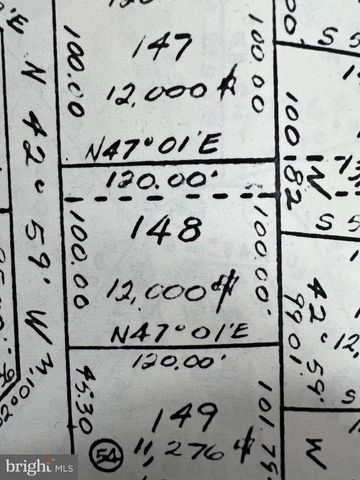 147
100.00
100.00
12,000 ⌗
N47°01'E
120.00'
148
100.00
100.00'
12,000 ⌗
N47°01'E
120.00'
149
45.30
54
11,276 ⌗
N 42° 59' W
100.82
N 42° 59' W
99.01
S 5
S 5
12,
bright MLS